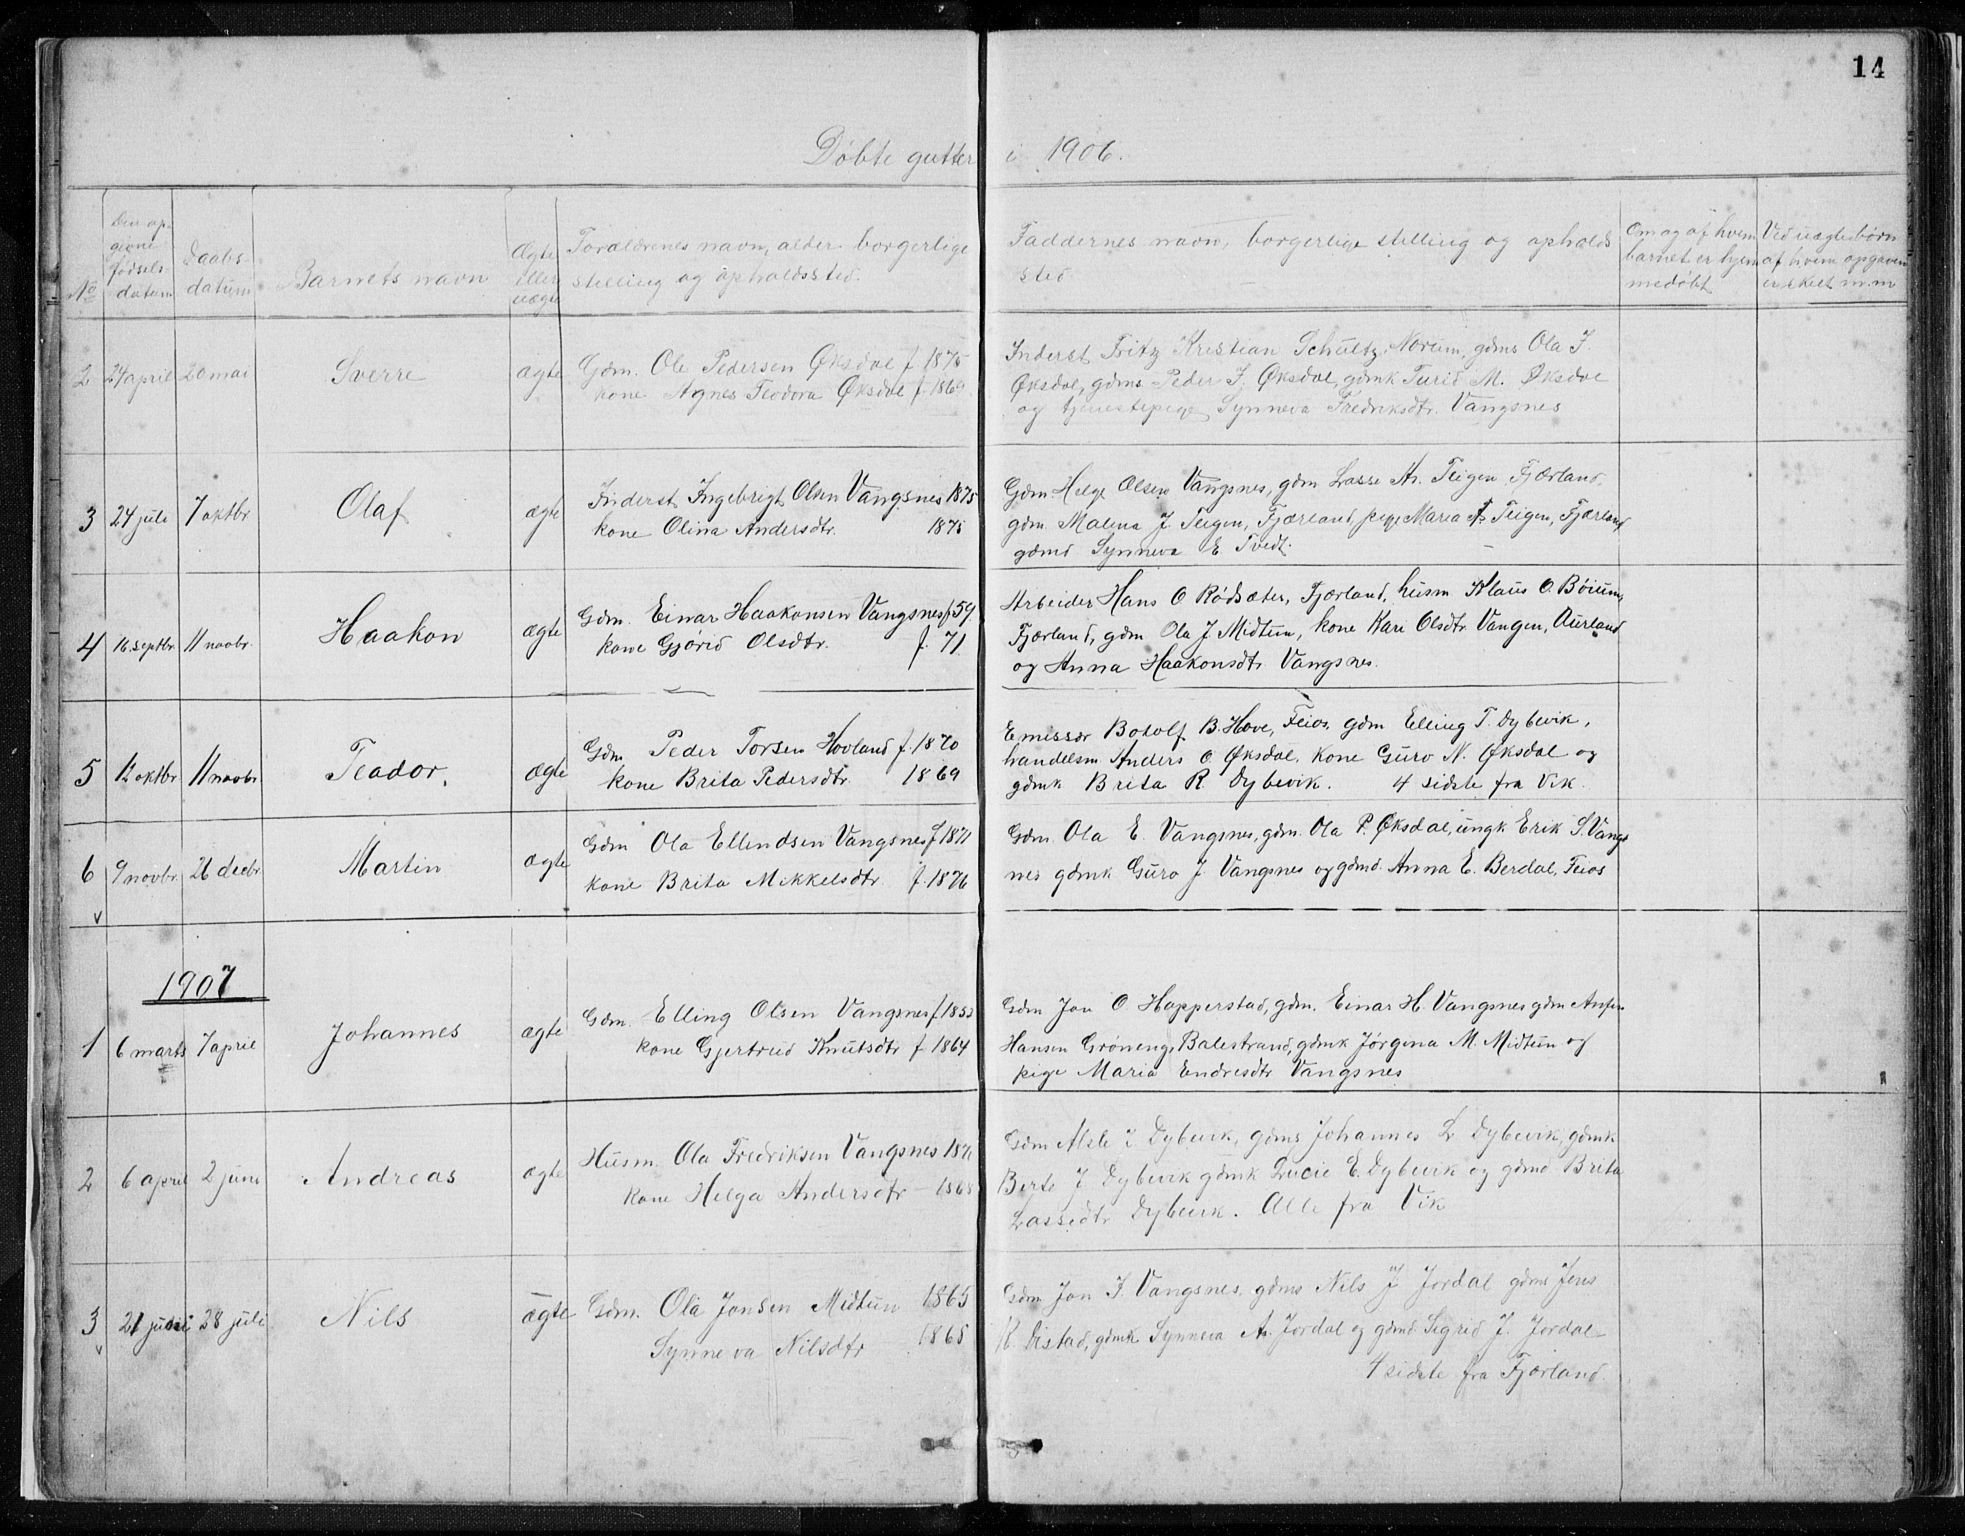 14
Døbte gutter i 1906.
No
Den op-
givne
fødsels-
datum
Daabs-
datum
Barnets navn
Ægte
eller
uægte
Forældrenes navn, alder borgerlige
stilling og opholdssted.
Faddernes navn, borgerlige stilling og opholds
sted
Om og af hvem
barnet er hjem
medøbt
Ved uægte børn
af hvem opgaven
er skeet m.m
2 24 april 20 mai Sverre ægte
Gdm. Ole Pedersen Øksdal f 1875
kone Agnes Teodora Øksdal f. 1869
Inderst Fritz Kristian Schultz, Norum, gdms Ola J.
Øksdal, gdms Peder J. Øksdal, gdmk Turid M. Øksdal
og tjenestepige Synneva Fredriksdtr. Vangsnes
3 24 juli 7 oktbr Olaf ægte
Inderst Ingebrigt Olsen Vangsnes 1875
kone Olina Andersdtr. 1875
Gdm. Helge Olsen Vangsnes, gdm Lasse An. Teigen Fjærland,
gdm. Malena J. Teigen, Fjærland, pige Maria Teigen, Fjærland
gdmd Synneva E Tvedt.
4 16. septbr. 11 novbr. Haakon ægte
Gdm. Einar Haakonsen Vangsnes f 59
kone Gjørid Olsdtr. f. 71
Arbeider Hans O Rødsæter, Fjærland, husm Klaus O. Bøium,
Fjærland, gdm Ola J Midtun, kone Kari Olsdtr Vangen, Aurland
og Anna Haakonsdtr Vangsnes.
5 12 oktbr 11 novbr Teodor. ægte
Gdm. Peder Torsen Hovland f. 1870
kone Brita Pedersdtr. 1869
Emissær Botolf B. Hove, Feios, gdm Elling T. Dybevik,
handelsm Anders O Øksdal, kone Guro N. Øksdal og
gdmk Brita R. Dybevik. 4 sidste fra Vik.
6 9 novbr. 26 decbr Martin ægte
Gdm Ola Ellendsen Vangsnes f 1871
kone Brita Mikkelsdtr. f. 1876
Gdm. Ola E. Vangsnes, gdm. Ola P. Øksdal, ungk Erik S. Vangs
nes gdmk Guro J. Vangsnes og gdmd. Anna E. Berdal, Feios
1907
1 6 marts 7 april Johannes ægte
Gdm. Elling Olsen Vangsnes f 1853
kone Gjertrud Knutsdtr f 1864
Gdm Jon O Hopperstad, gdm. Einar H. Vangsnes gdm Anfin
Hansen Grøneng, Balestrand, gdmk Jørgina M. Midtun og
pige Maria Endresdtr Vangsnes
2 6 april 2 juni Andreas ægte
Husm. Ola Fredriksen Vangsnes
kone Helga Andersdtr – 1868
Gdm Atle Dybevik, gdms Johannes L Dybevik, gdmk
Berte J Dybevik gdmk Lucie E. Dybevik og gdmd Brita
Lassedtr Dybevik. Alle fra Vik
3 21 juni 28 juli Nils ægte
Gdm. Ola Jonsen Midtun 1865
Synneva Nilsdtr 1865
Gdm Jon J. Vangsnes, gdms Nils J Jordal gdms Jens
Distad, gdmk Synneva A. Jordal og gdmd Sigrid J. Jordal
4 sidste fra Fjærland.